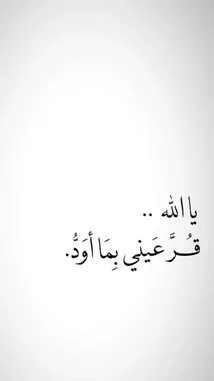 يا الله ..
قــرَّ عَيني بِمَا أوَدُّ.